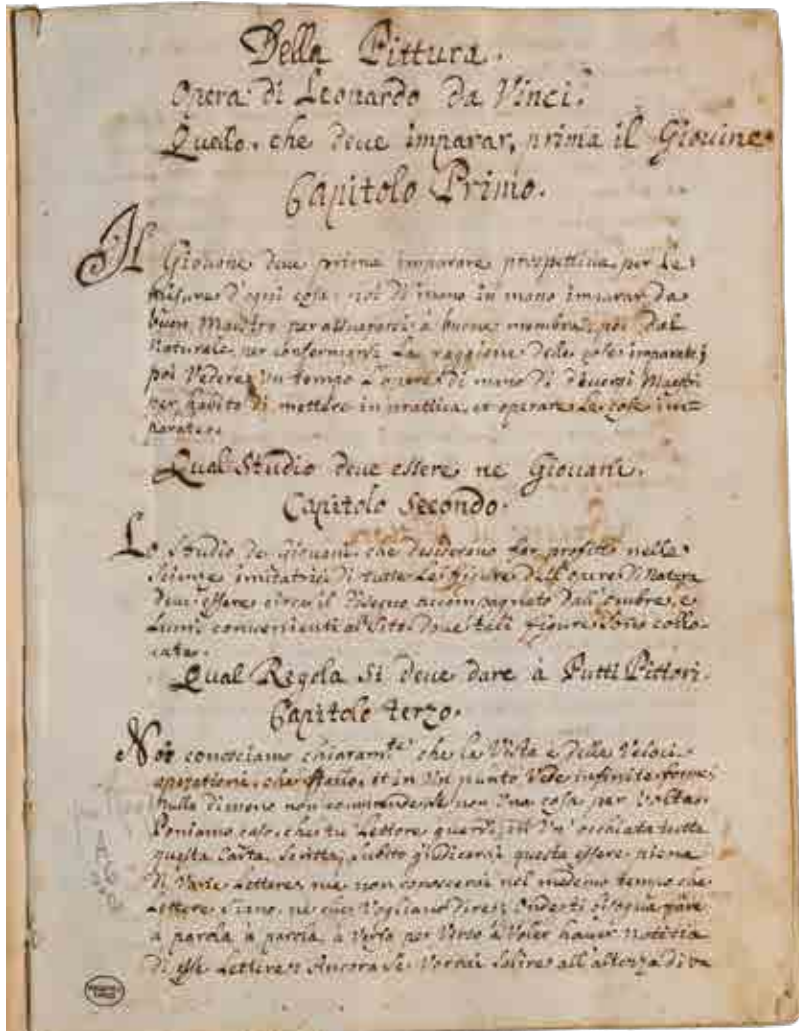 Della Pittura.
Opera di Leonardo da Vinci.
Quello, che deue imparar, prima il Giouine
Capitolo Primo.
Il Giouane deue prima imparare prospettiua per le
misure d'ogni cosa: poi di mano in mano imparar da
buon Maestro per assuefarsi à buone membra; poi dal
Naturale, per confermarsi la raggione delle cose imparate;
poi Vedere un tempo l'opere di mano di diuersi Maestri
per habito di mettere in prattica, et operare le cose im=
parate.
Qual Studio deue essere ne Giouani.
Capitolo Secondo.
Lo Studio de Giouani, che desiderano far profitto nelle
Scienze imitatrici di tutte le figure dell'opere di Natura
deue essere circa il disegno accompagnato dall'ombre, e
Lumi convenienti al Sito, doue tali figure sono collo=
cate.
Qual Regola Si deue dare à Putti Pittori.
Capitolo terzo.
Noi conosciamo chiaram.te che la Vista è delle Veloci
operationi, che siano, et in Un punto Vede infinite forme;
nulla dimeno non comprende se non Una cosa per Volta.
Poniamo caso, che tu Lettore guardi in Un'occhiata tutta
questa Carta Scritta, Subito giudicarai questa essere piena
di Varie Lettere, mà non conoscerai nel medemo tempo che
Lettere Siano, ne che Vogliano dire; Onde ti bisogna fare
à parola à parola, à Verso per Verso à Voler hauer notitia
di esse Lettere; Ancora Se Vorrai Salire all'altezza di vn